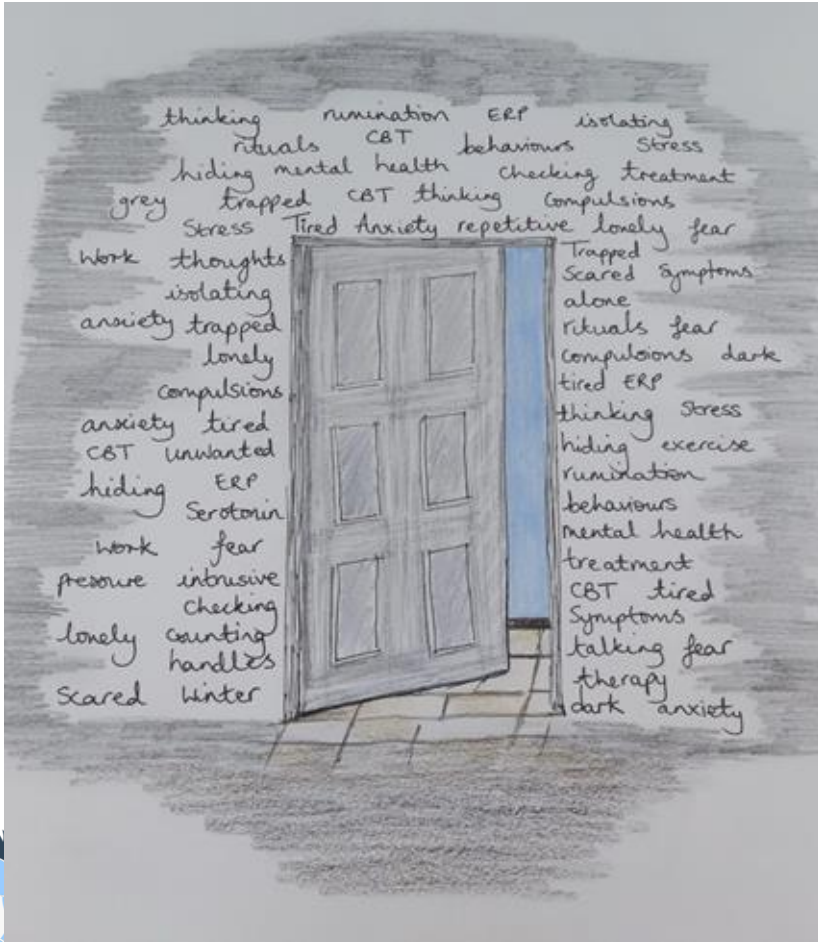 thinking rumination ERP isolating
rituals CBT behaviours Stress
hiding mental health checking treatment
grey trapped CBT thinking compulsions
Stress Tired Anxiety repetitive lonely fear
Work thoughts
isolating
anxiety trapped
lonely
compulsions
anxiety tired
CBT unwanted
hiding ERP
Serotonin
work fear
pressure intrusive
checking
lonely counting
handles
Scared Winter
Trapped
Scared Symptoms
alone
rituals fear
compulsions dark
tired ERP
thinking Stress
hiding exercise
rumination
behaviours
mental health
treatment
CBT tired
Symptoms
talking fear
therapy
dark anxiety